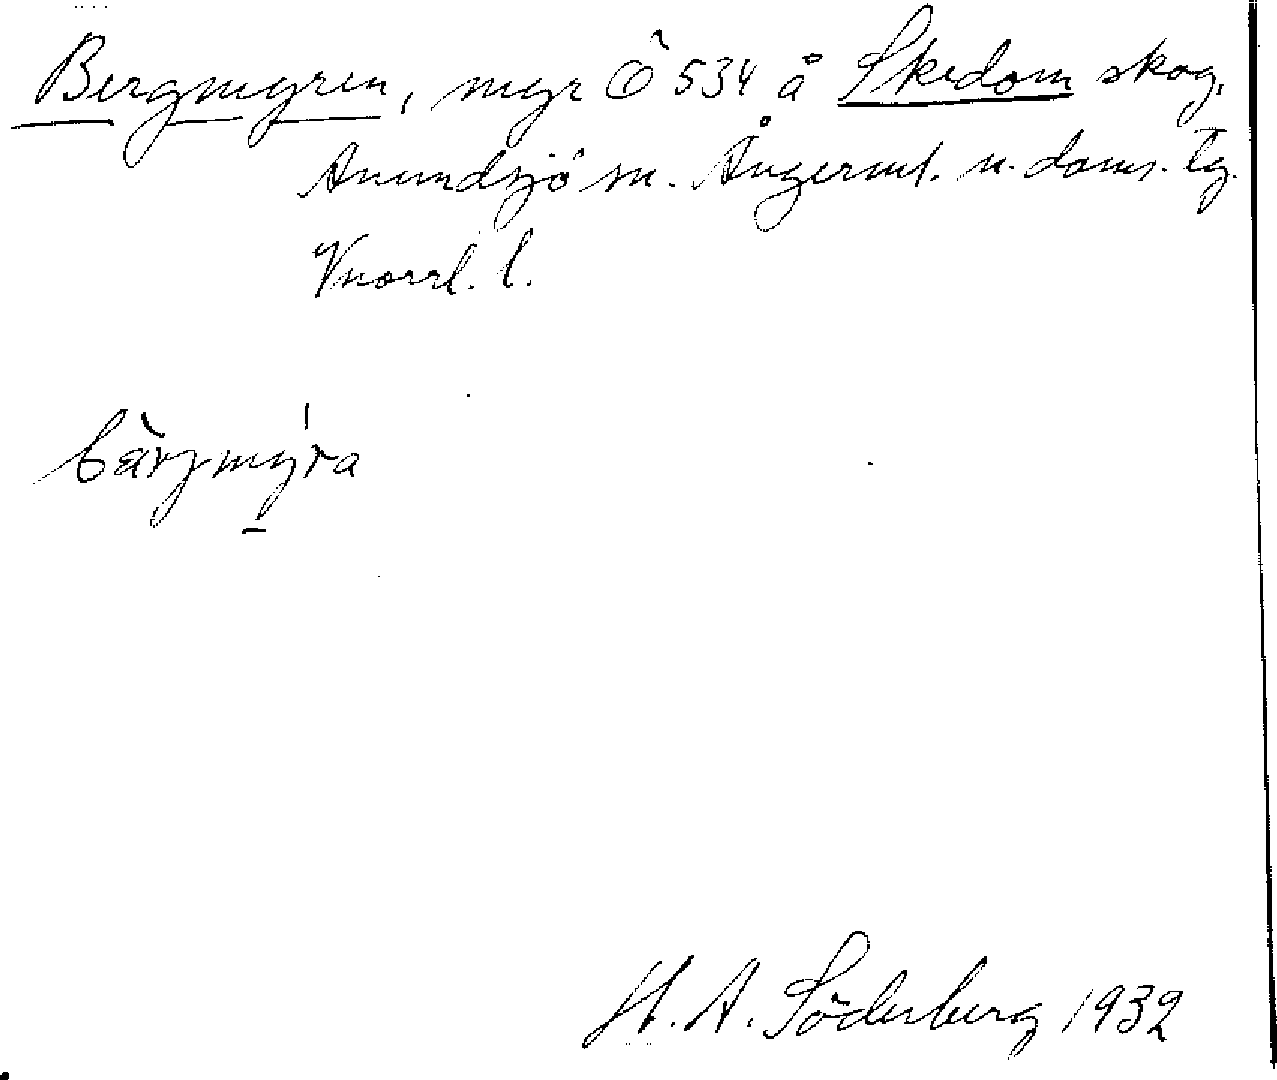 Bergmyren, myr Ô 534 å Skedom skog,
Anundsjö sn. Ångerml. n. doms. tg.
Vnorrl. l.
bä̀rjmy̍ra
H. A. Söderberg 1932